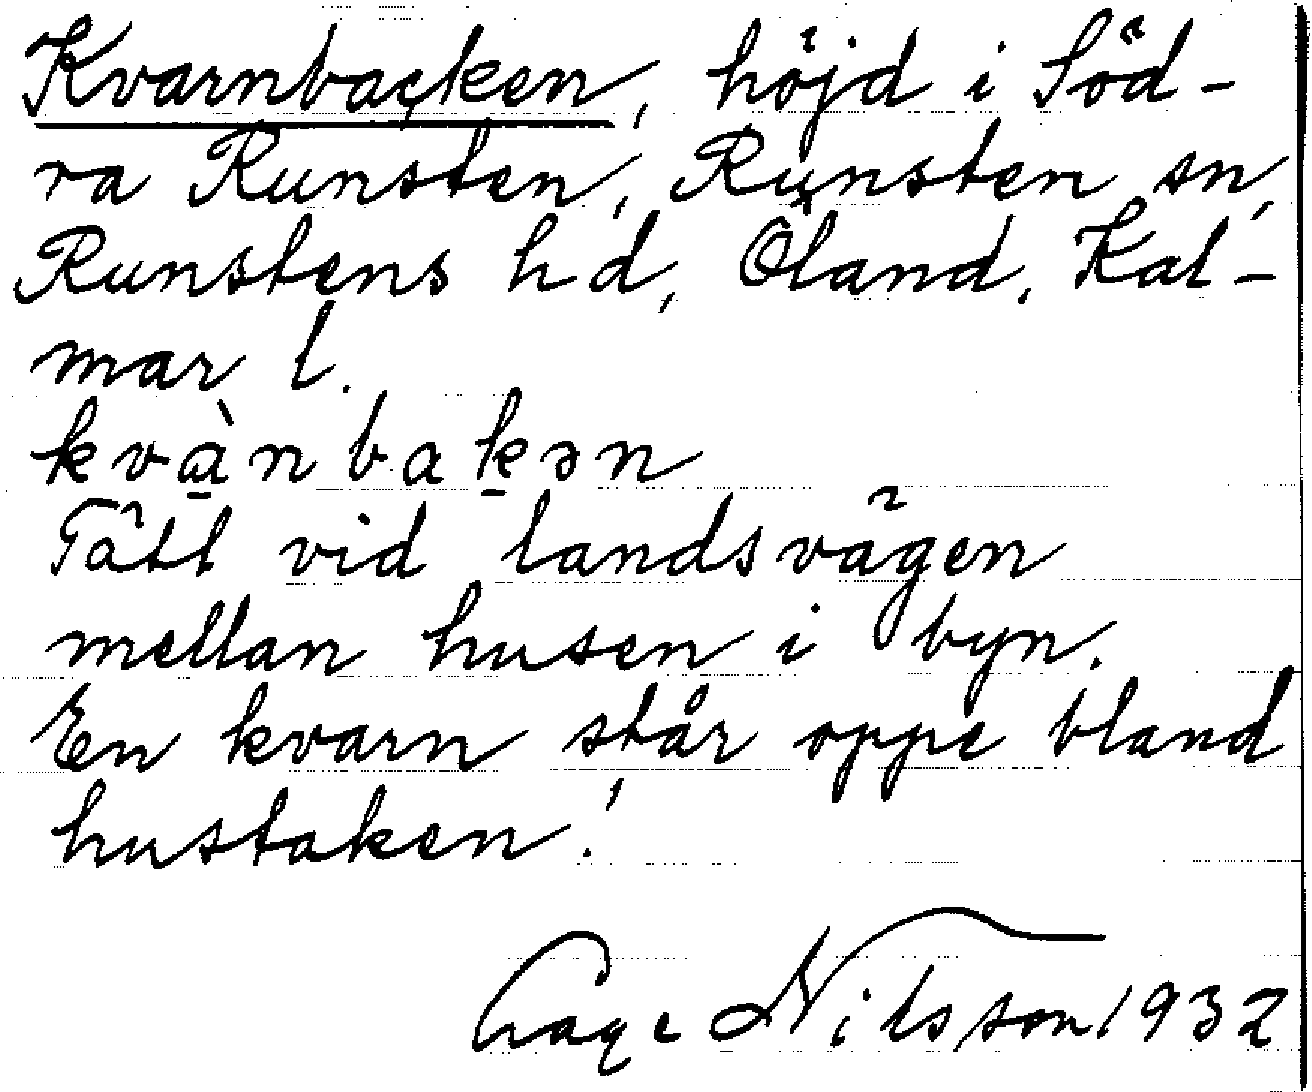 Kvarnbacken, höjd i Söd-
ra Runsten, Runsten sn,
Runstens hd, Öland, Kal-
mar l.
kvà̱nbaḵən
Tätt vid landsvägen
mellan husen i byn.
En kvarn står oppe bland
hustaken!
Åage Nilsson 1932